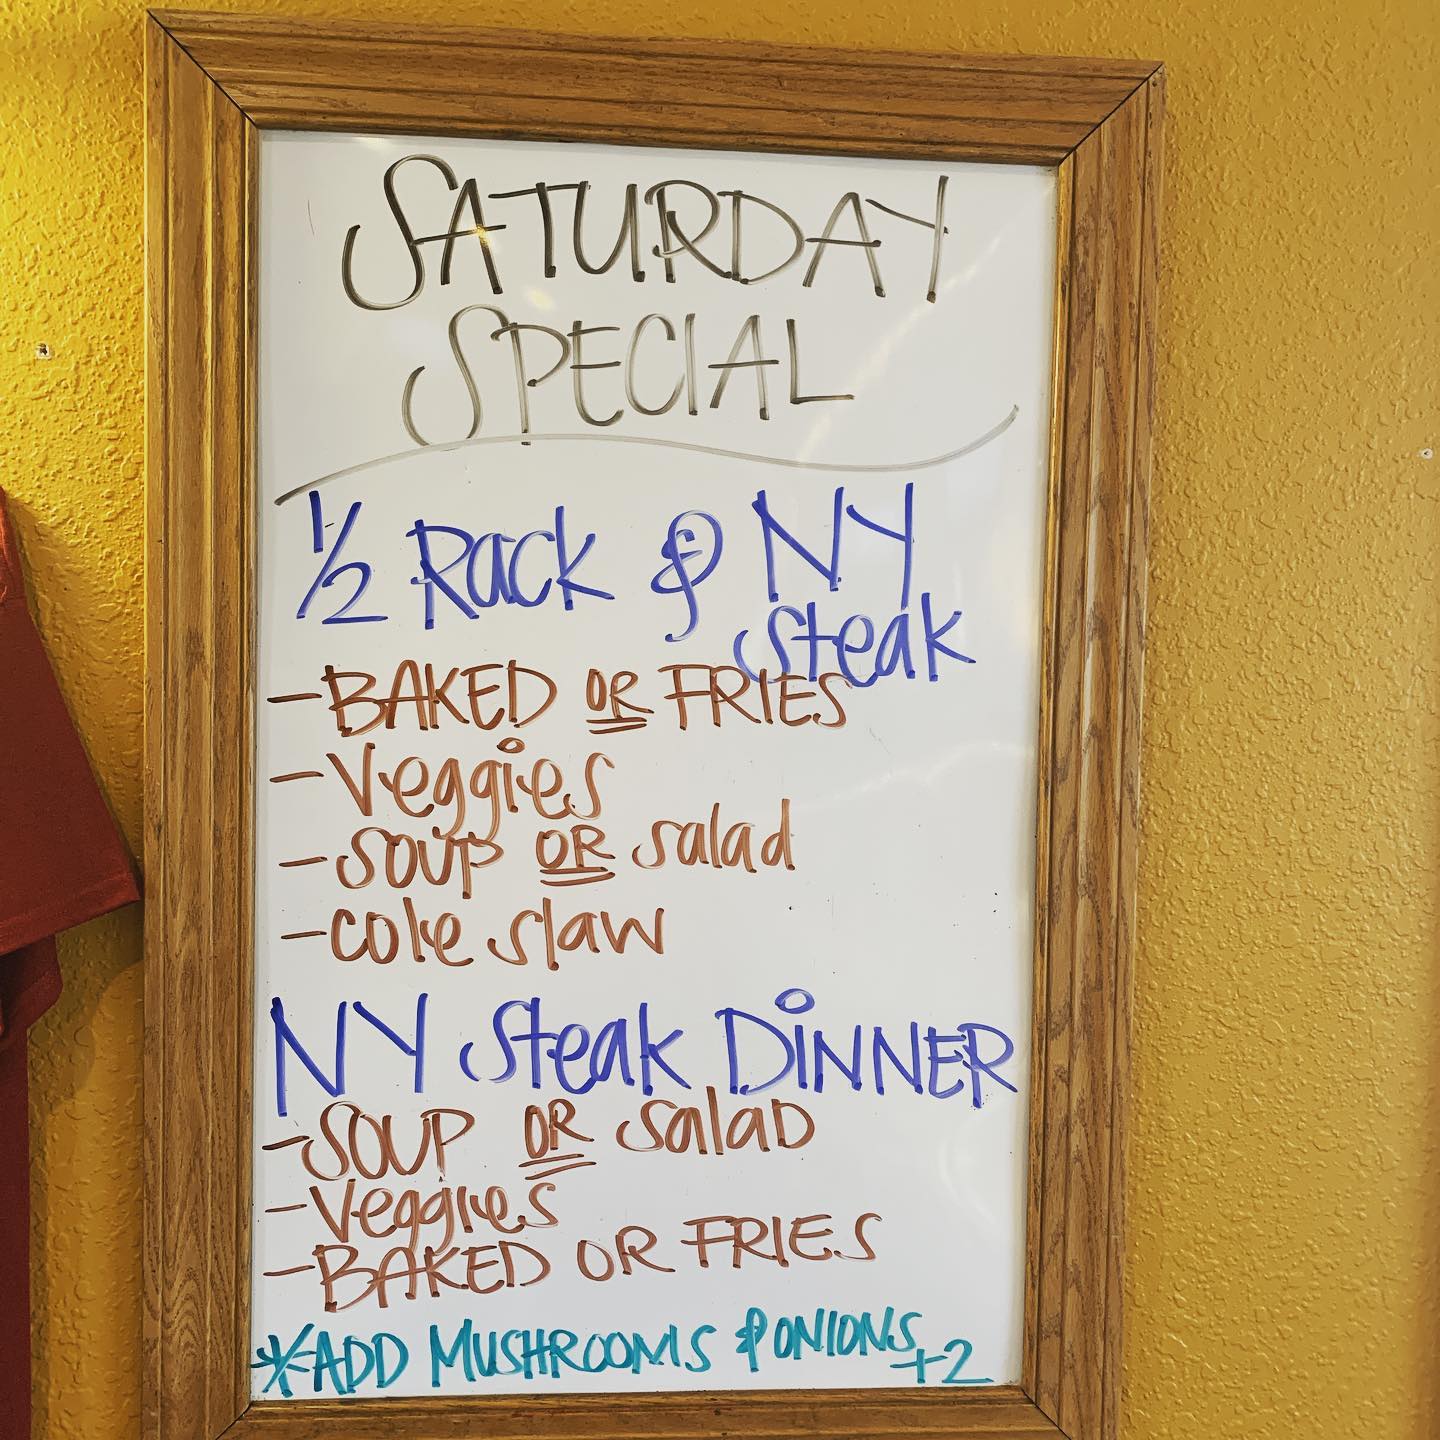 SATURDAY
SPECIAL
1/2 Rack & NY
Steak
- BAKED OR FRIES
- Veggies
- SOUP OR Salad
- cole slaw
NY Steak DINNER
- SOUP OR Salad
- Veggies
- BAKED OR FRIES
*ADD MUSHROOMS & ONIONS +2